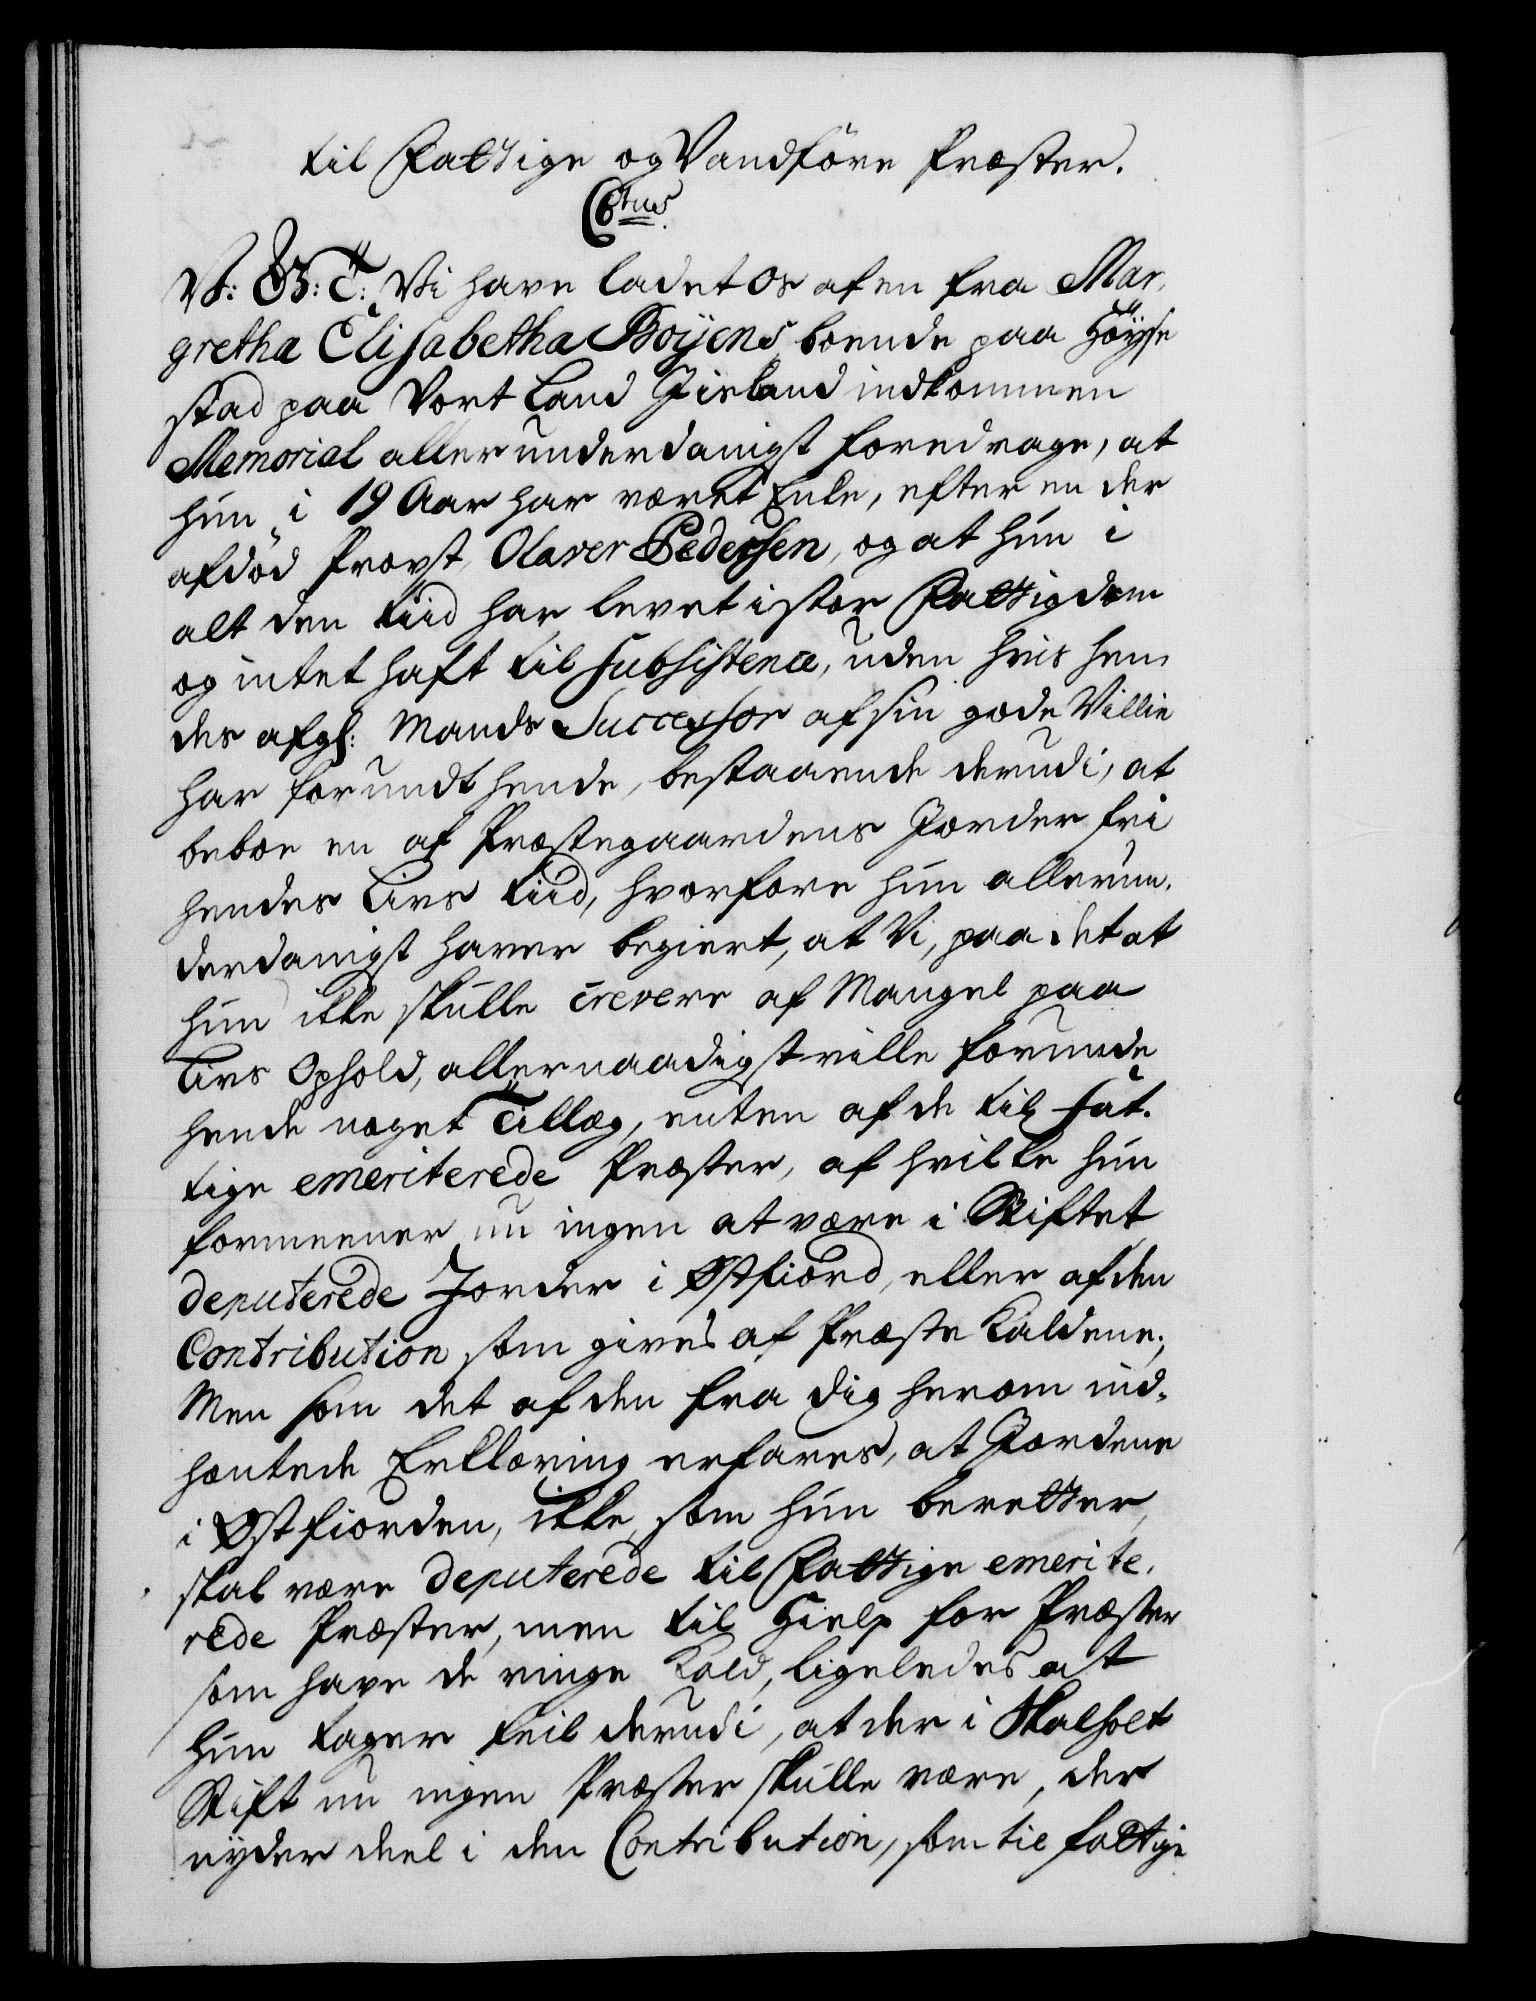 til Fattige og Vandföre Præster.
Ctus.
V: G: T: Vi have ladet Os af en fra Mar-
gretha Elisabetha Boÿens, boende paa Höyse
stad paa Vort Land Jisland indkommen
Memorial allerunderdanigst foredrage, at
hun i 19 Aar har været Enke, efter en der
afdöd Provst, Olaver Pedersen, og at hun i
alt den tiid har levet i stor Fattigdom
og intet haft til subsistence, uden hvis hen-
des afgl: Mands Successor af sin gode Villie
har forundt hende, bestaaende derudi, at
beboe en af Præstegaardens Jorder fri
hendes Livs tiid, hvorfore hun allerun-
derdanigst haver begiert, at Vi, paa det at
hun ikke skulle crepere af Mangel paa
Livs Ophold, allernaadigst ville forunde
hende noget Tillæg, enten af de til fat-
tige emeriterede Præster, af hvilke hun
formeener nu ingen at være i Stiftet
deputerede Jorder i Østfiord, eller af den
Contribution som gives af Præste Kaldene;
Men som det af den fra dig herom ind-
hentede Erklæring erfares, at Jordene
i Østfiorden, ikke, som hun beretter,
skal være deputerede til Fattige emerite-
rede Præster, men til Hielp for Præster
som have de ringe Kald, ligeledes at
hun tager feil derudi, at der i Skalholt
Stift nu ingen Præster skulle være, der
nÿder deel i den Contribution, som til fattige